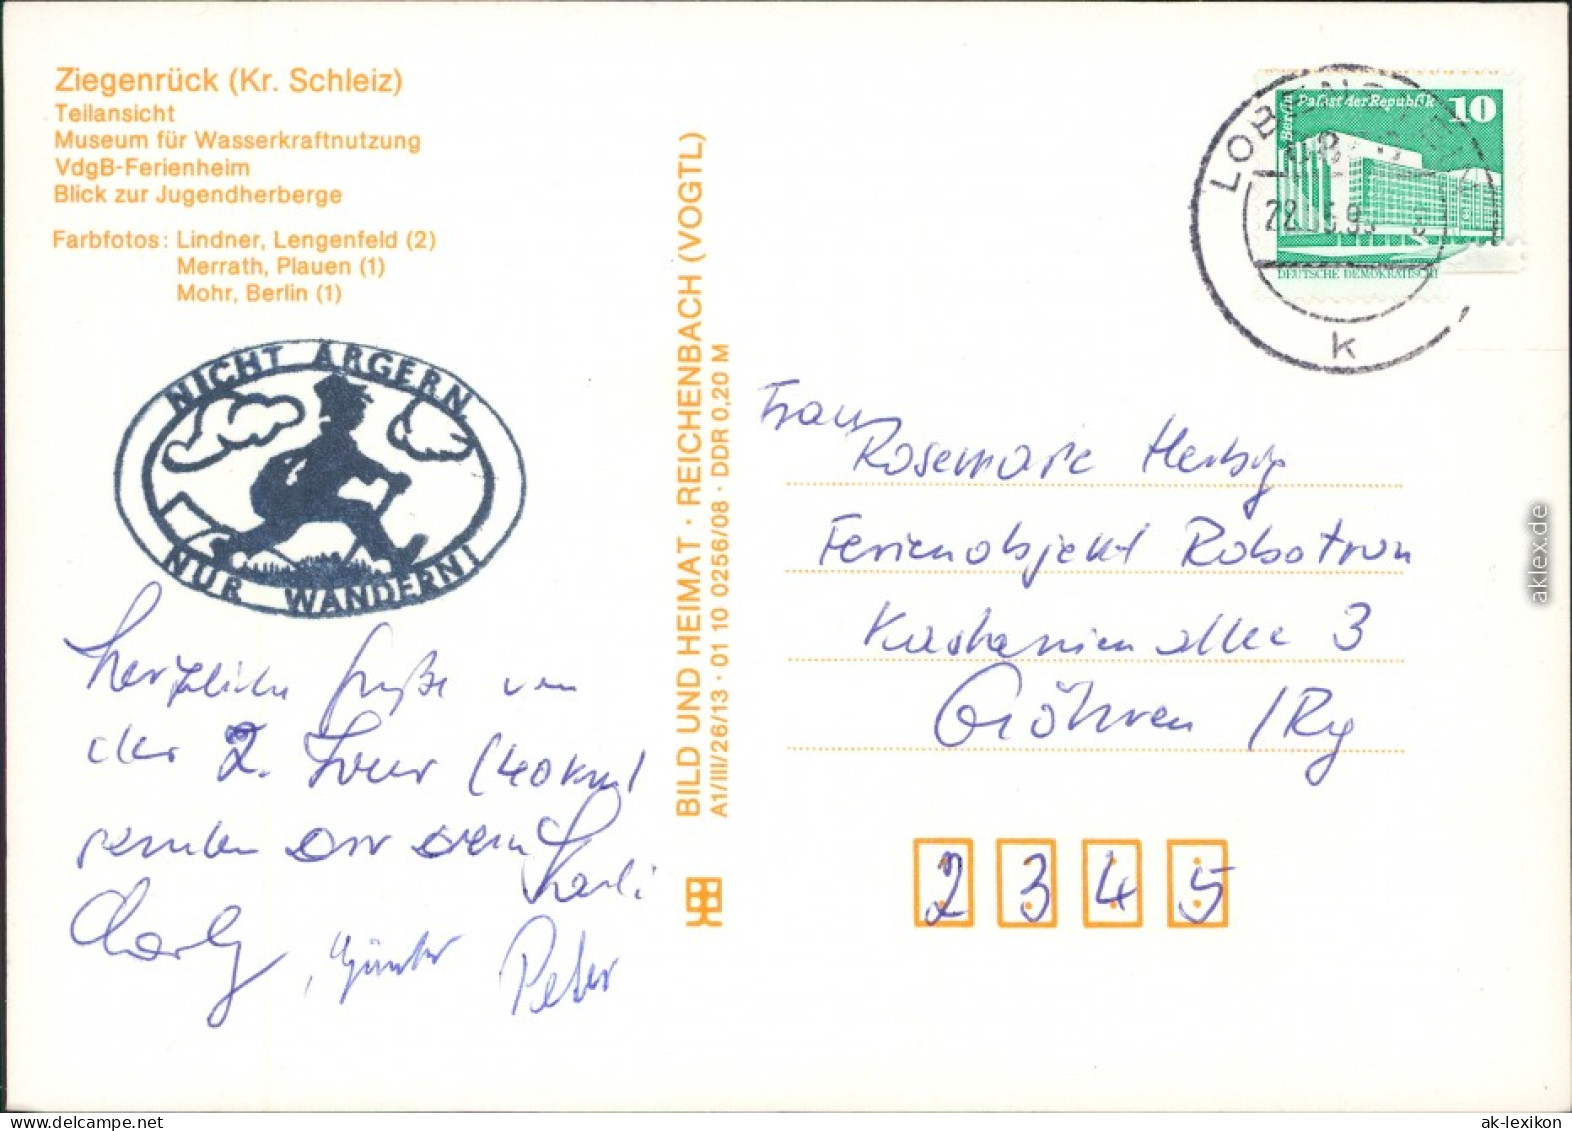 Ziegenrück (Kr. Schleiz)
Teilansicht
Museum für Wasserkraftnutzung
VdgB-Ferienheim
Blick zur Jugendherberge
Farbfotos: Lindner, Lengenfeld (2)
Merrath, Plauen (1)
Mohr, Berlin (1)
NICHT ÄRGERN
NUR WANDERN!
Herzliche Grüße von
der 2. Tour (40 km)
senden
Charly, Günter Peter
BILD UND HEIMAT · REICHENBACH (VOGTL)
A1/III/26/13 · 01 10 0256/08 · DDR 0,20 M
Berlin Palast der Republik 10
DEUTSCHE DEMOKRATISCHE
k
Frau
Rosemarie Herbig
Ferienobjekt Robotron
Kastanienallee 3
Göhren /Rg
2 3 4 5
aklex.de
ak-lexikon